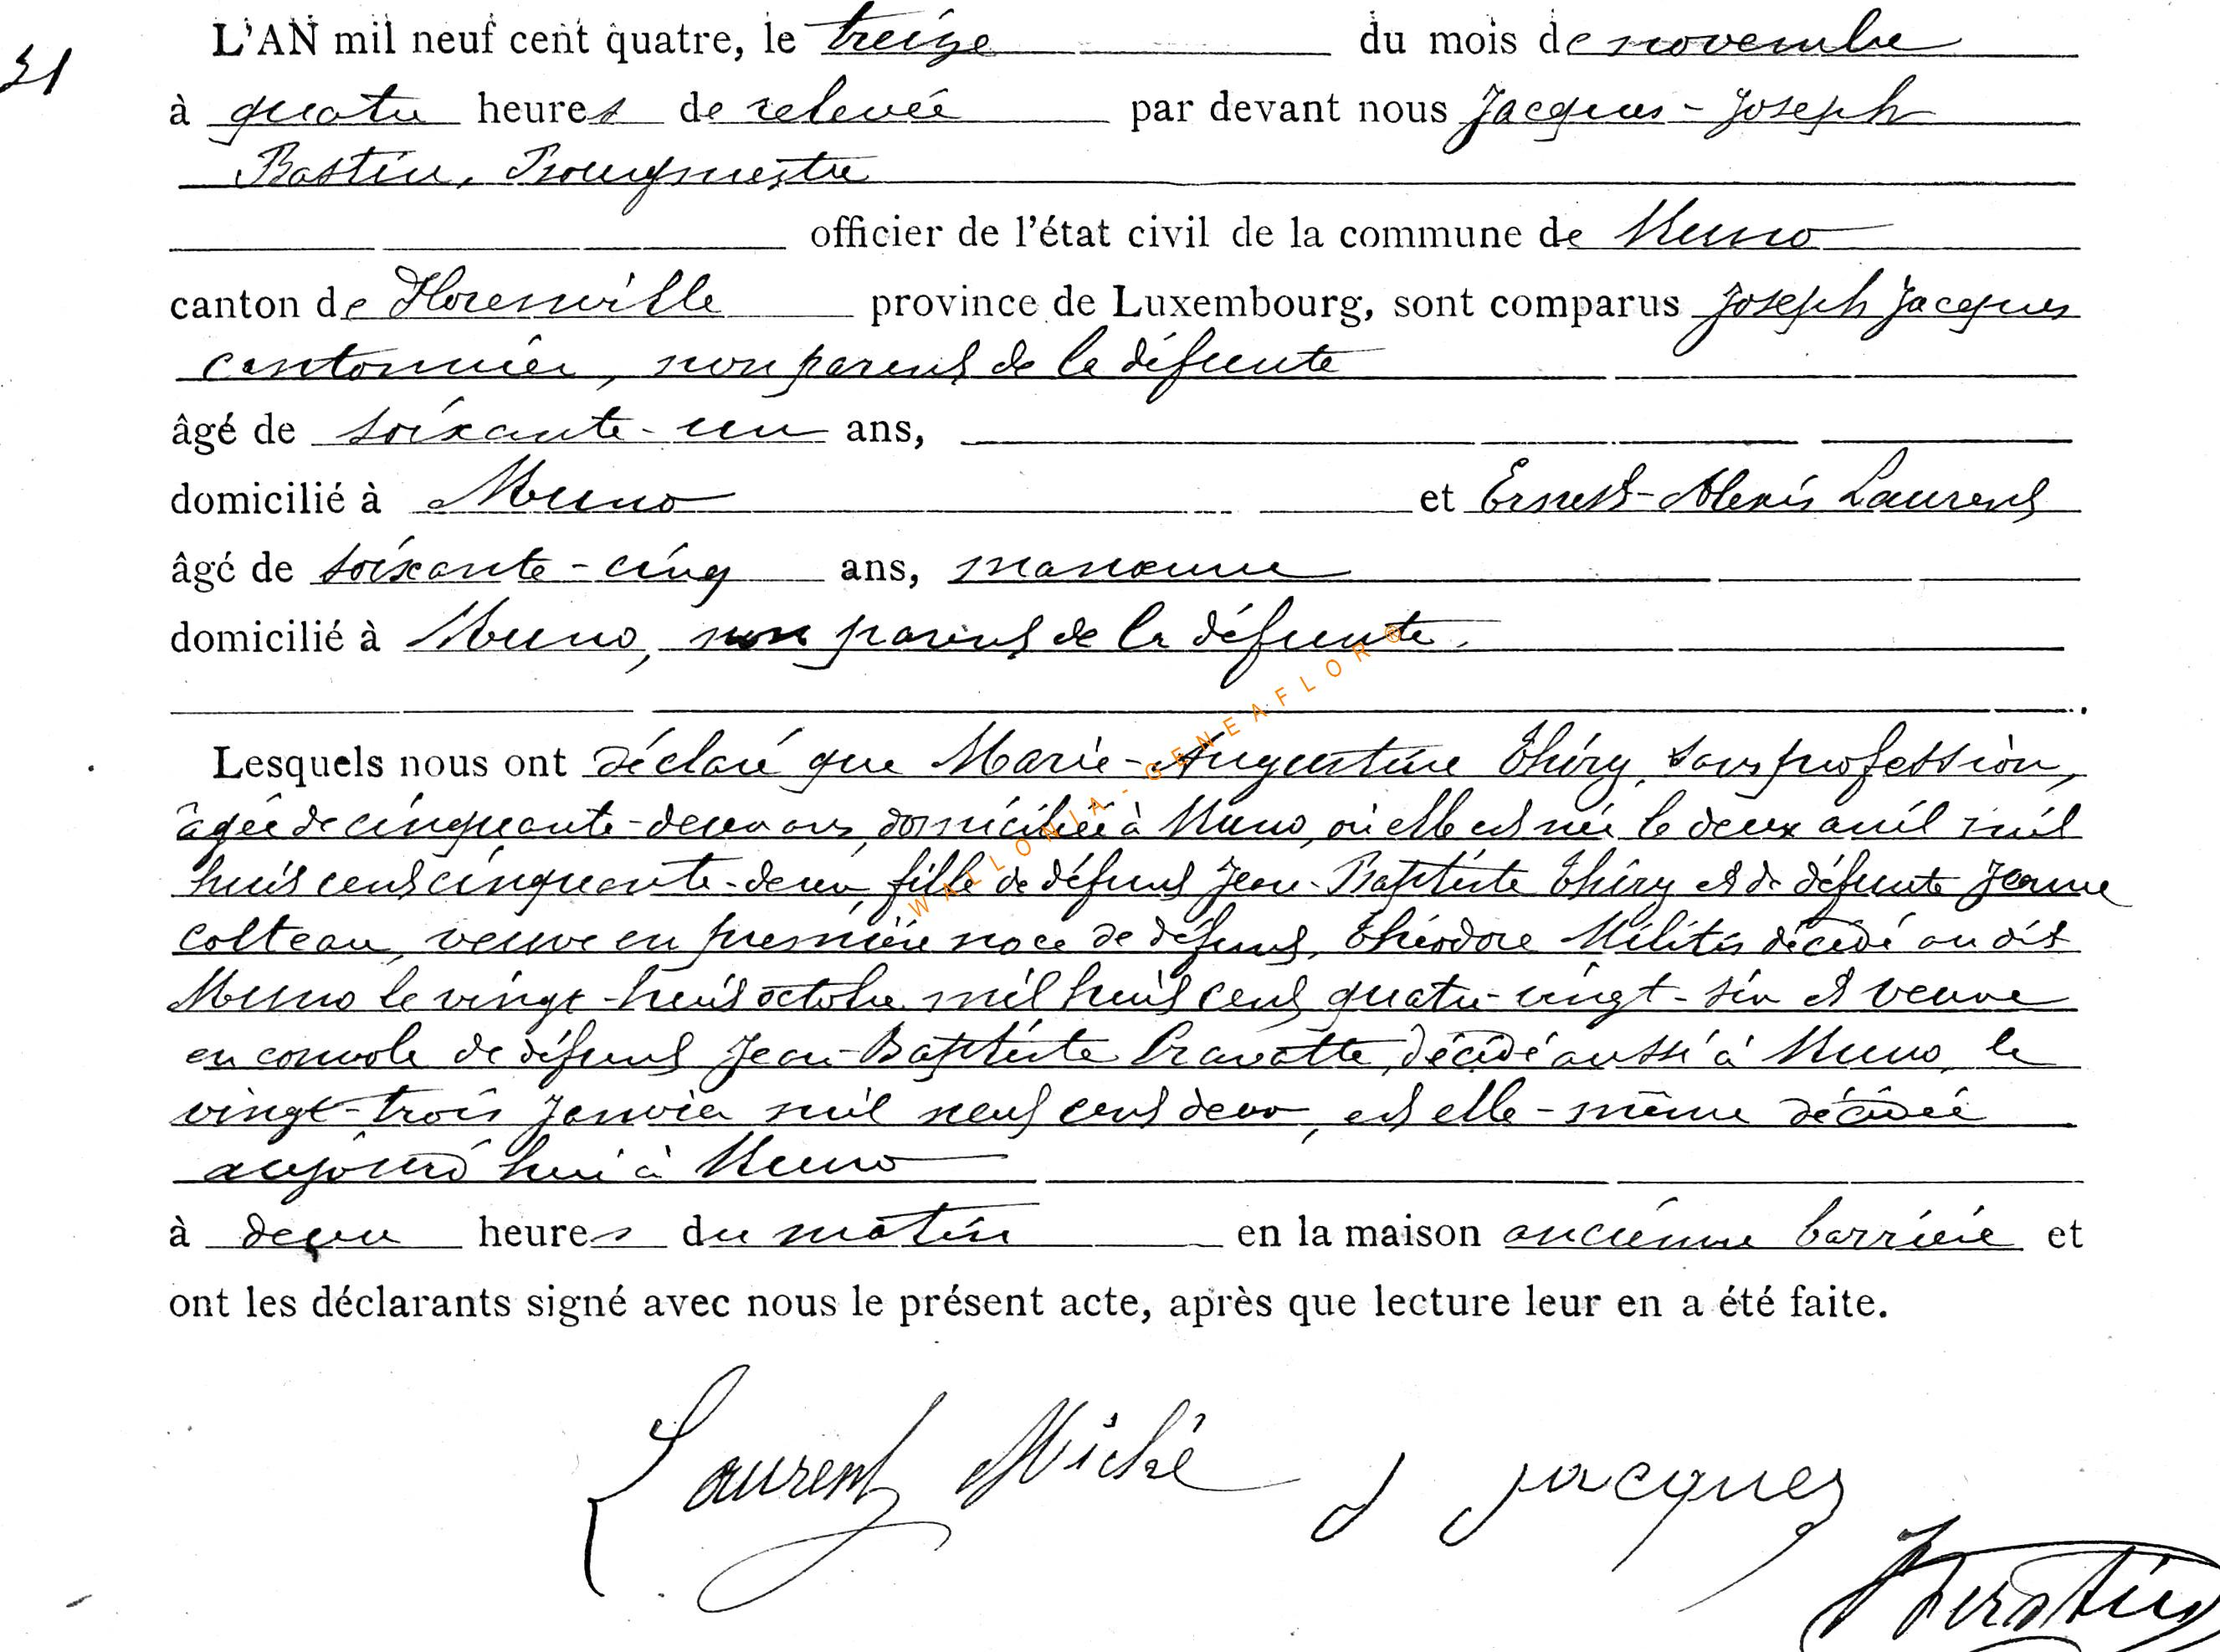 31
L'AN mil neuf cent quatre, le treize du mois de novembre
à quatre heures de relevée par devant nous Jacques-Joseph
Bastin, Bourgmestre
officier de l'état civil de la commune de Muno
canton de Florenville province de Luxembourg, sont comparus Joseph Jacques
cantonnier, non parent de la défunte
âgé de soixante-un ans,
domicilié à Muno et Ernest-Alexis Laurent
âgé de soixante-cinq ans, manœuvre
domicilié à Muno, non parent de la défunte.
Lesquels nous ont déclaré que Marie-Augustine Thiry, sans profession,
âgée de cinquante-deux ans, domiciliée à Muno, où elle est née le deux avril mil
huit cent cinquante-deux, fille de défunt Jean-Baptiste Thiry et de défunte Jeanne
Colteau, veuve en première noce de défunt, Théodore Militis décédé au dit
Muno le vingt-huit octobre mil huit cent quatre-vingt-six et veuve
en convole de défunt Jean-Baptiste Cravatte, décédé aussi à Muno, le
vingt-trois Janvier mil neuf cent deux, est elle-même décédée
aujourd'hui à Muno
à deux heures du matin en la maison ancienne barrière et
ont les déclarants signé avec nous le présent acte, après que lecture leur en a été faite.
WALLONIA-GENEAFLOR®
Laurent J Jacques
JBastin